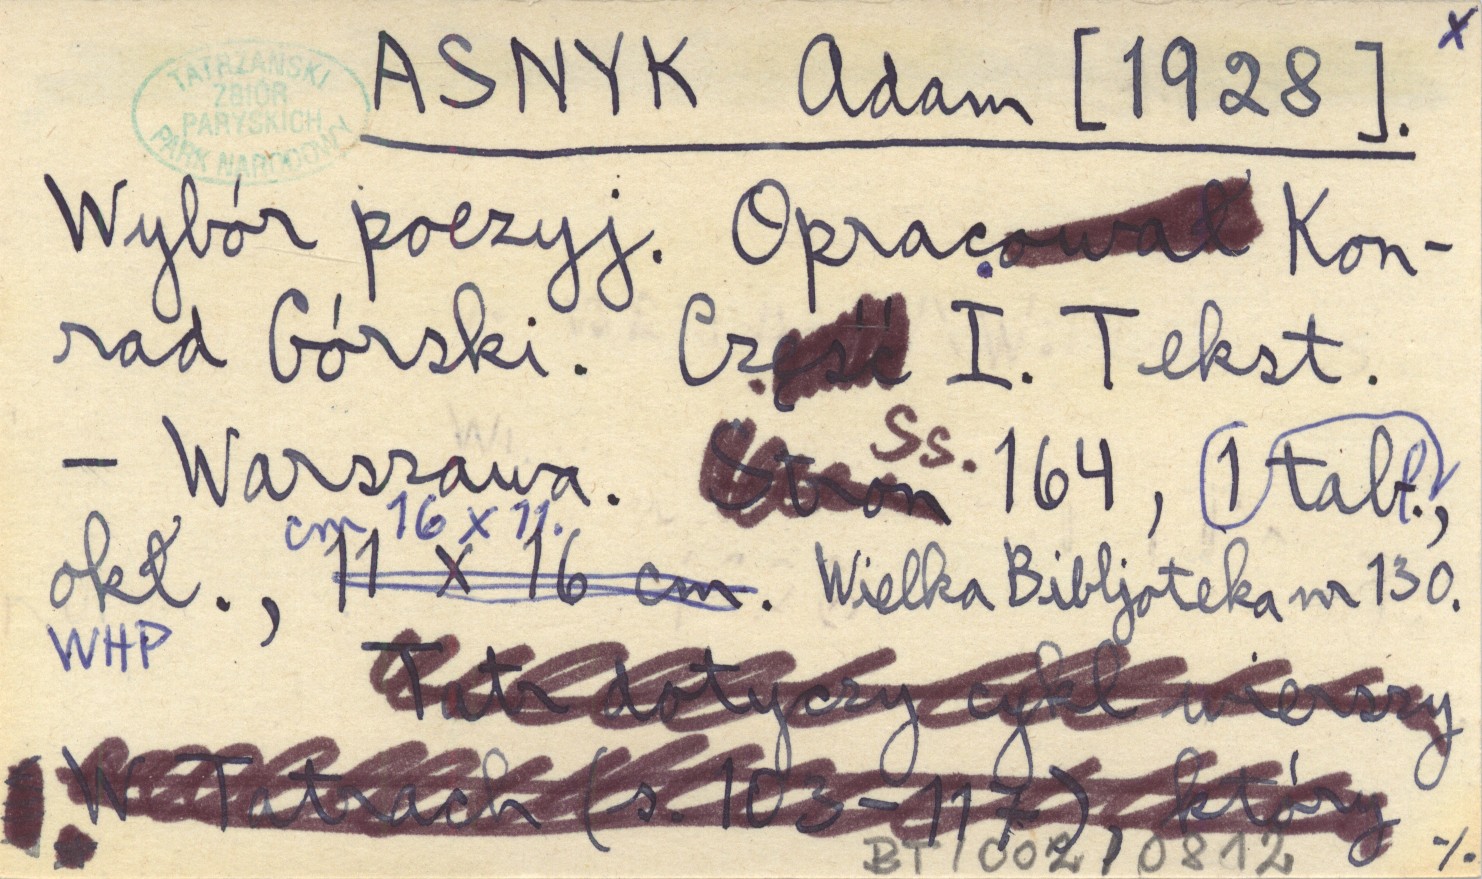 x
TATRZAŃSKI
ZBIÓR
PARYSKICH
PARK NARODOWY
ASNYK Adam [1928].
Wybór poezyj. Opracował Kon-
rad Górski. Część I. Tekst.
- Warszawa. Stron Ss. 164, 1 tabl.,
cm 16 x 11.
okł., 11 x 16 cm. Wielka Bibljoteka nr 130.
WHP
Tatr dotyczy cykl wierszy
W Tatrach (s. 103-117), który
BT/002/0812
·/.